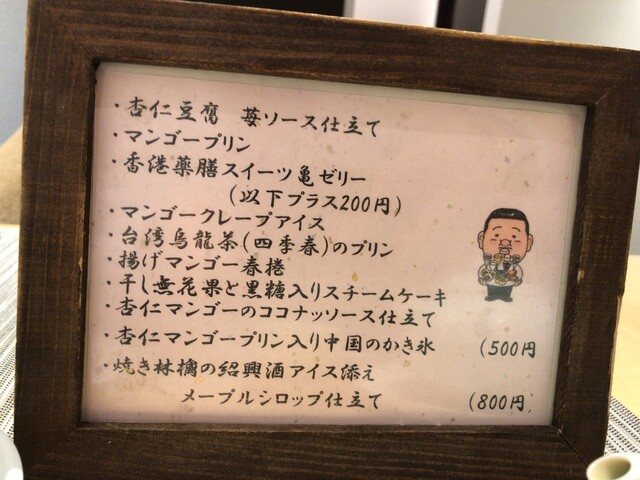 ・杏仁豆腐 苺ソース仕立て
・マンゴープリン
・香港薬膳スイーツ亀ゼリー
(以下プラス200円)
・マンゴークレープアイス
・台湾烏龍茶(四季春)のプリン
・揚げマンゴー春捲
・干し無花果と黒糖入りスチームケーキ
・杏仁マンゴーのココナッソース仕立て
・杏仁マンゴープリン入り中国のかき氷 (500円
・焼き林檎の紹興酒アイス添え
メープルシロップ仕立て (800円)